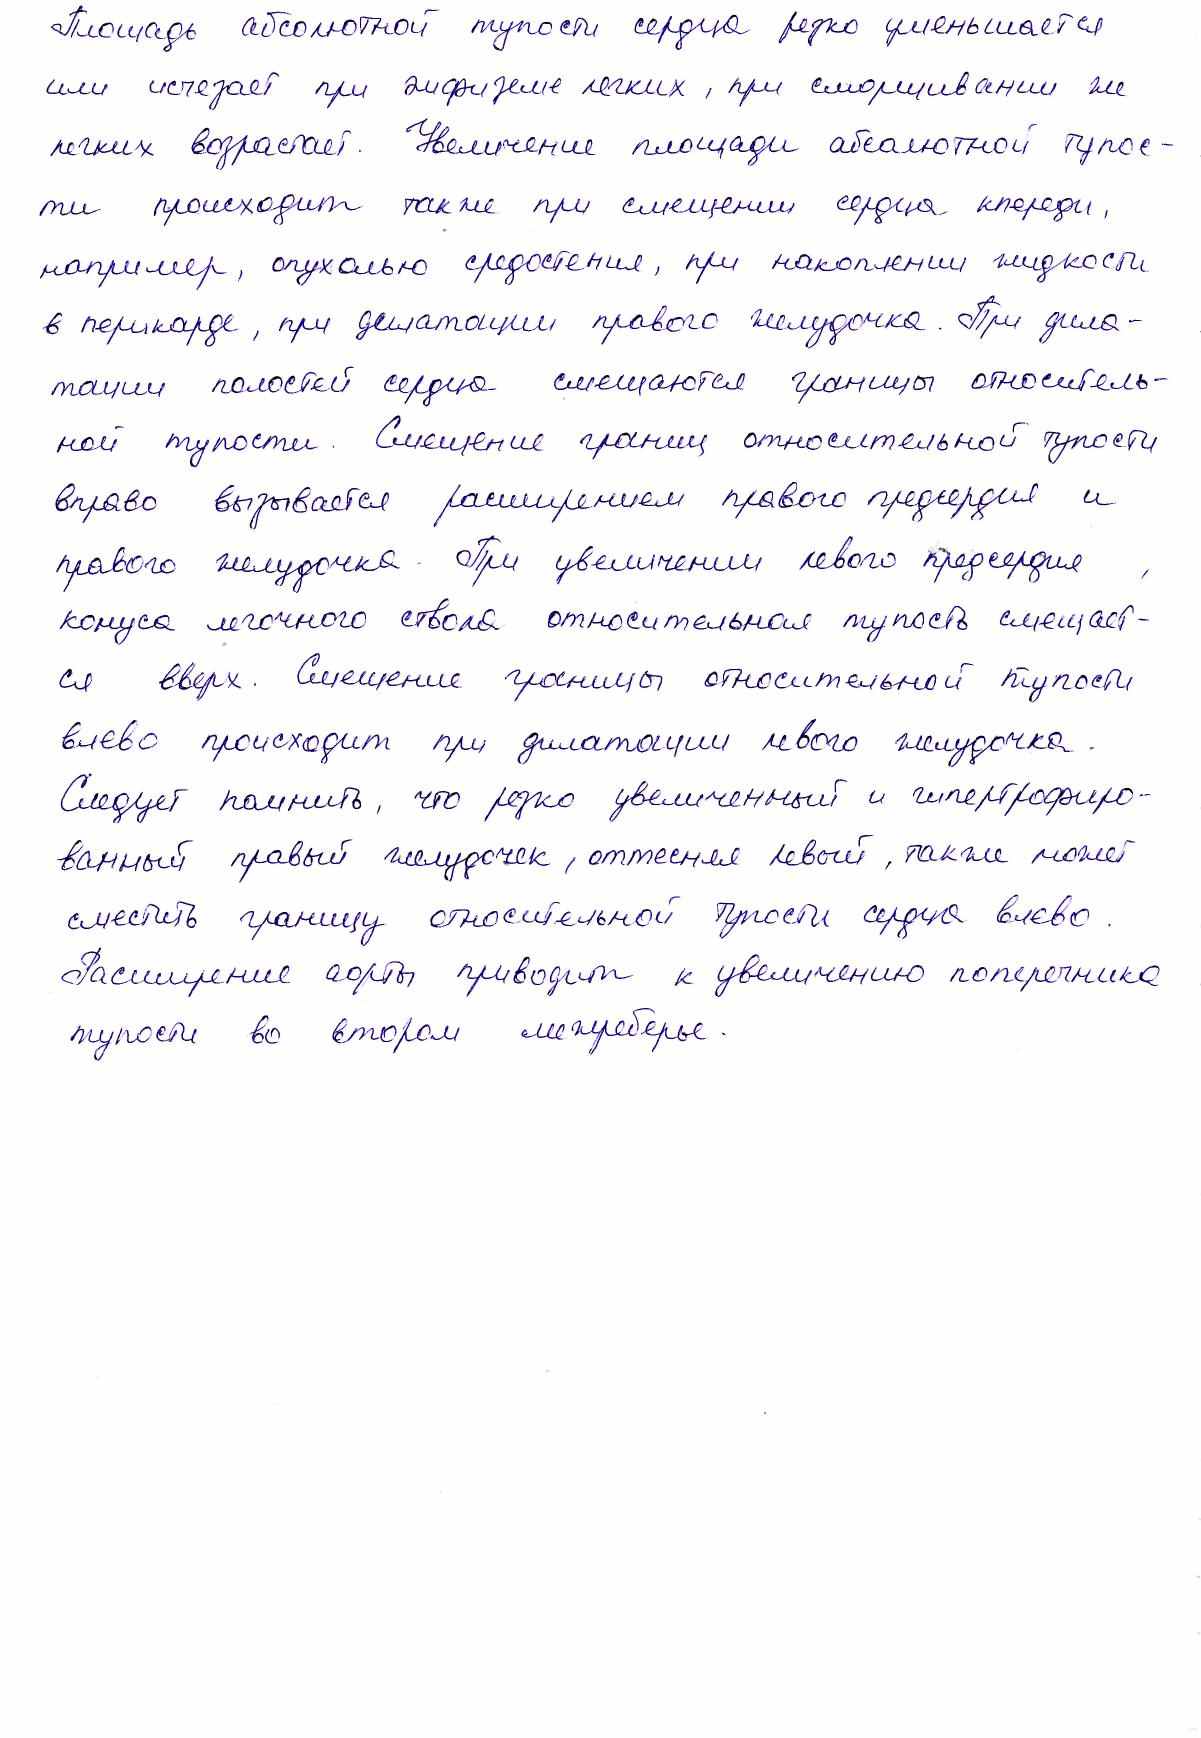 Площадь абсолютной тупости сердца резко уменьшается
или исчезает при эмфиземе легких, при сморщивании же
легких возрастает. Увеличение площади абсолютной тупос-
ти происходит также при смещении сердца кпереди,
например, опухолью средостения, при накоплении жидкости
в перикарде, при дилатации правого желудочка. При дила-
тации полостей сердца смещаются границы относитель-
ной тупости. Смещение границ относительной тупости
вправо вызывается расширением правого предсердия и
правого желудочка. При увеличении левого предсердия ,
конуса легочного ствола относительная тупость смещает-
ся вверх. Смещение границы относительной тупости
влево происходит при дилатации левого желудочка.
Следует помнить, что резко увеличенный и гипертрофиро-
ванный правый желудочек, оттесняя левый, также может
сместить границу относительной тупости сердца влево.
Расширение аорты приводит к увеличению поперечника
тупости во втором межреберье.